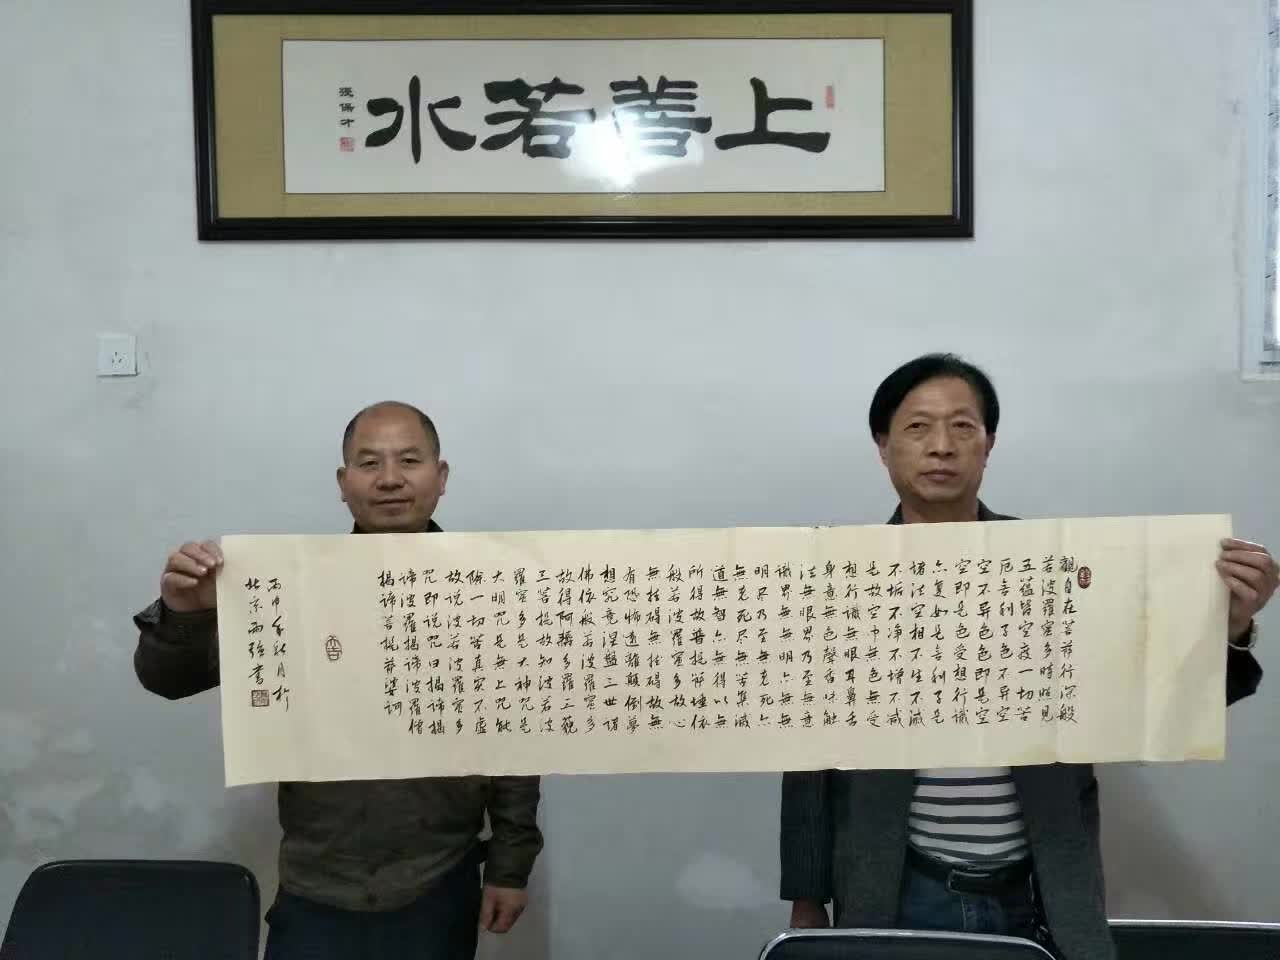 上善若水
張保才
觀自在菩薩行深般
若波羅蜜多時照見
五蘊皆空度一切苦
厄舍利子色不异空
空不异色色即是空
空即是色受想行識
亦复如是舍利子是
诸法空相不生不滅
不垢不净不增不减
是故空中無色無受
想行識無眼耳鼻舌
身意無色聲香味触
法無眼界乃至無意
識界無無明亦無無
明尽乃至無老死亦
無老死尽無苦集滅
道無智亦無得以無
所得故菩提薩埵依
般若波羅蜜多故心
無挂碍無挂碍故無
有恐怖遠離顛倒夢
想究竟涅盤三世诸
佛依般若波羅蜜多
故得阿耨多羅三藐
三菩提故知波若波
羅蜜多是大神咒是
大明咒是無上咒能
除一切苦真实不虚
故说波若波羅蜜多
咒即说咒曰揭諦揭
諦波羅揭諦波羅僧
揭諦菩提莎婆訶
丙申年秋月於
北京雨强書